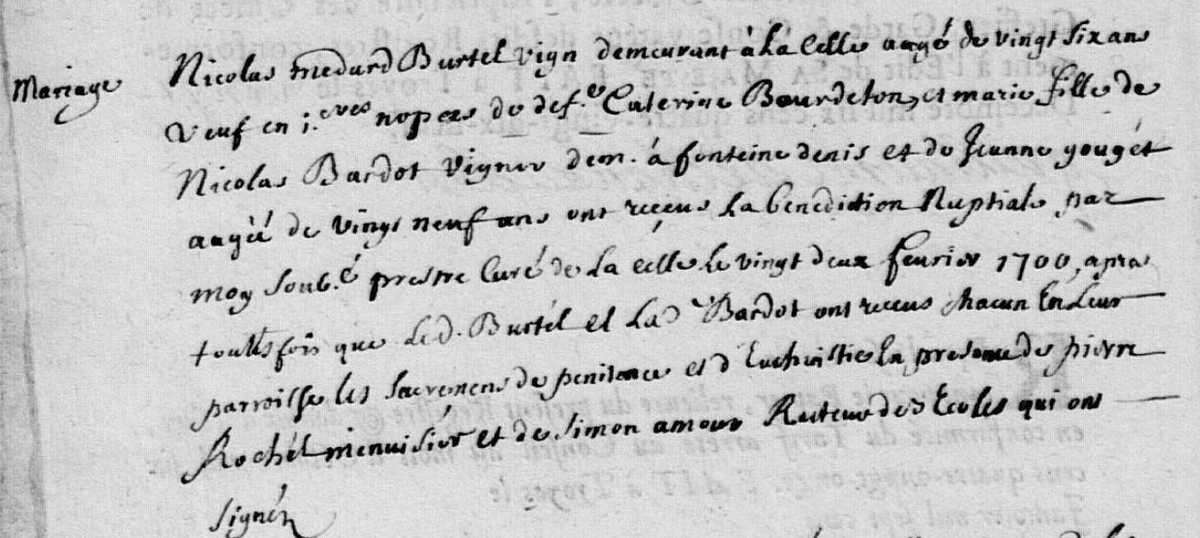 Mariage
Nicolas medard Burtel vign demeurant à la Celle aagé de vingt six ans
veuf en i.eres nopces de def.e Caterine Bourdeton, et marie fille de
Nicolas Bardot vigner dem. à fonteine denis et de Jeanne gougét
aagéé de vingt neuf ans ont receus la benediction Nuptiale par
moy soub.é prestre Curé de la celle le vingt deux feurier 1700, apres
touttesfois que le d. Burtél et la d Bardot ont receus chacun En Leur
parroisse les sacremens de penitence et d Euchristie En presence de pierre
Rochél menuisiér et de simon amour Recteur des Ecoles qui ont
signéz